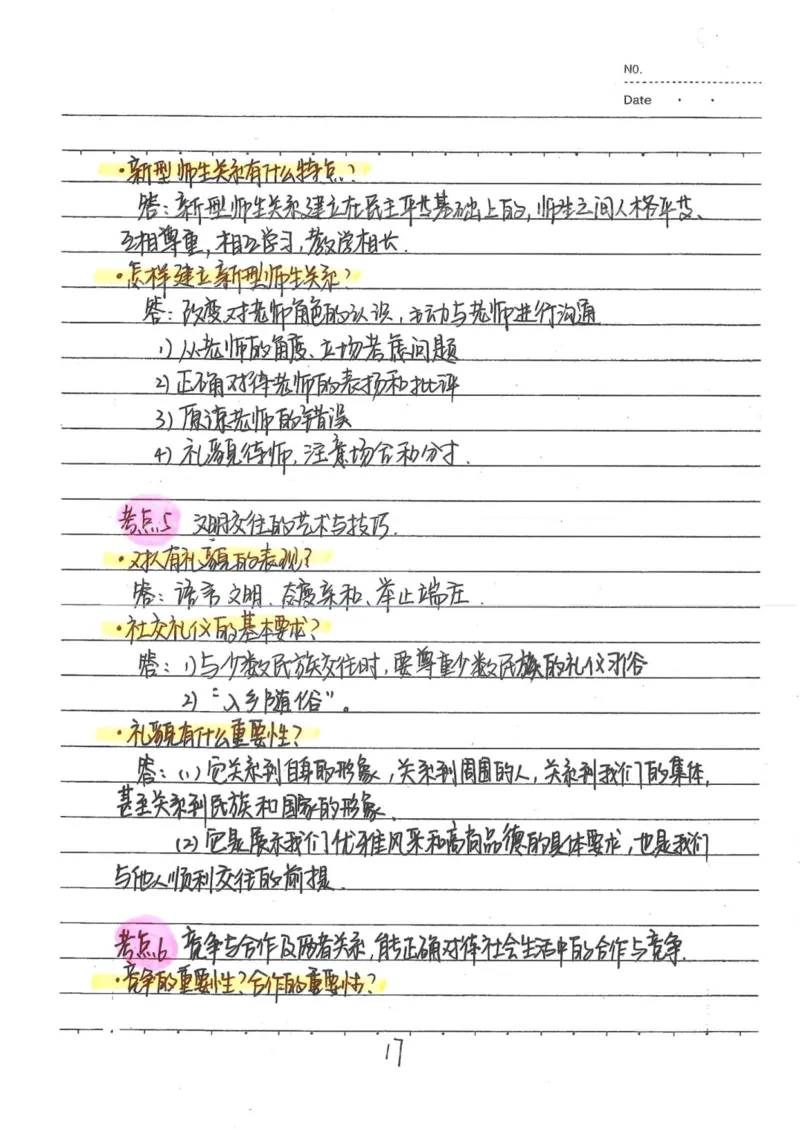 NO.
Date
·新型师生关系有什么特点?
答:新型师生关系建立在民主平等基础上的,师生之间人格平等、
互相尊重,相互学习,教学相长.
·怎样建立新型师生关系?
答:改变对老师角色的认识,主动与老师进行沟通
1)从老师的角度、立场考虑问题
2)正确对待老师的表扬和批评
3)原谅老师的错误
4)礼貌待师,注意场合和分寸.
考点5 文明交往的艺术与技巧.
·对人有礼貌的表现?
答:语言文明、态度亲和、举止端庄.
·社交礼仪的基本要求?
答:1)与少数民族交往时,要尊重少数民族的礼仪习俗
2)“入乡随俗”。
·礼貌有什么重要性?
答:(1)它关系到自身的形象,关系到周围的人,关系到我们的集体,
甚至关系到民族和国家的形象.
(2)它是展示我们优雅风采和高尚品德的具体要求,也是我们
与他人顺利交往的前提.
考点6 竞争与合作及两者关系,能正确对待社会生活中的合作与竞争.
·竞争的重要性?合作的重要性?
17